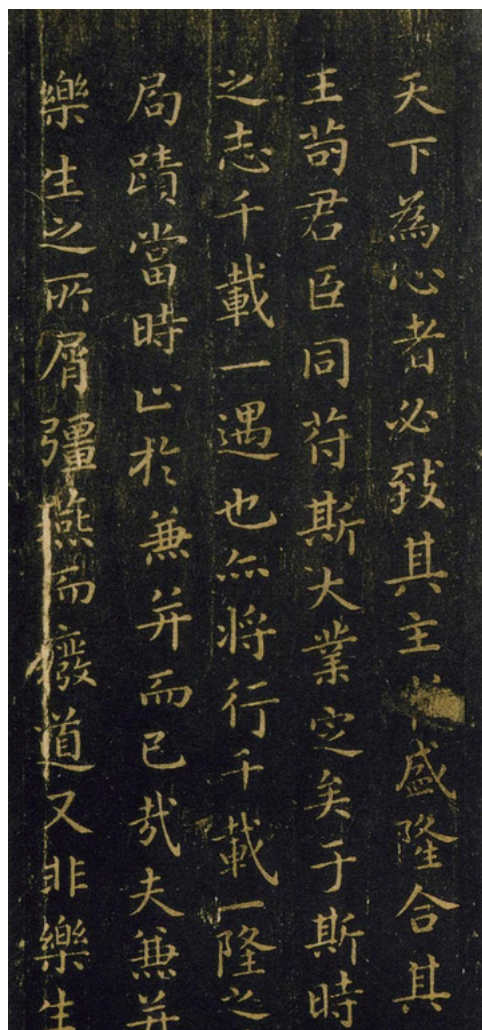 天下為心者必致其主盛隆合其
王苟君臣同苻斯大業定矣于斯時
之志千載一遇也亦将行千載一隆之
局蹟當時止於兼并而已哉夫兼并
樂生之所屑彊燕而廢道又非樂生